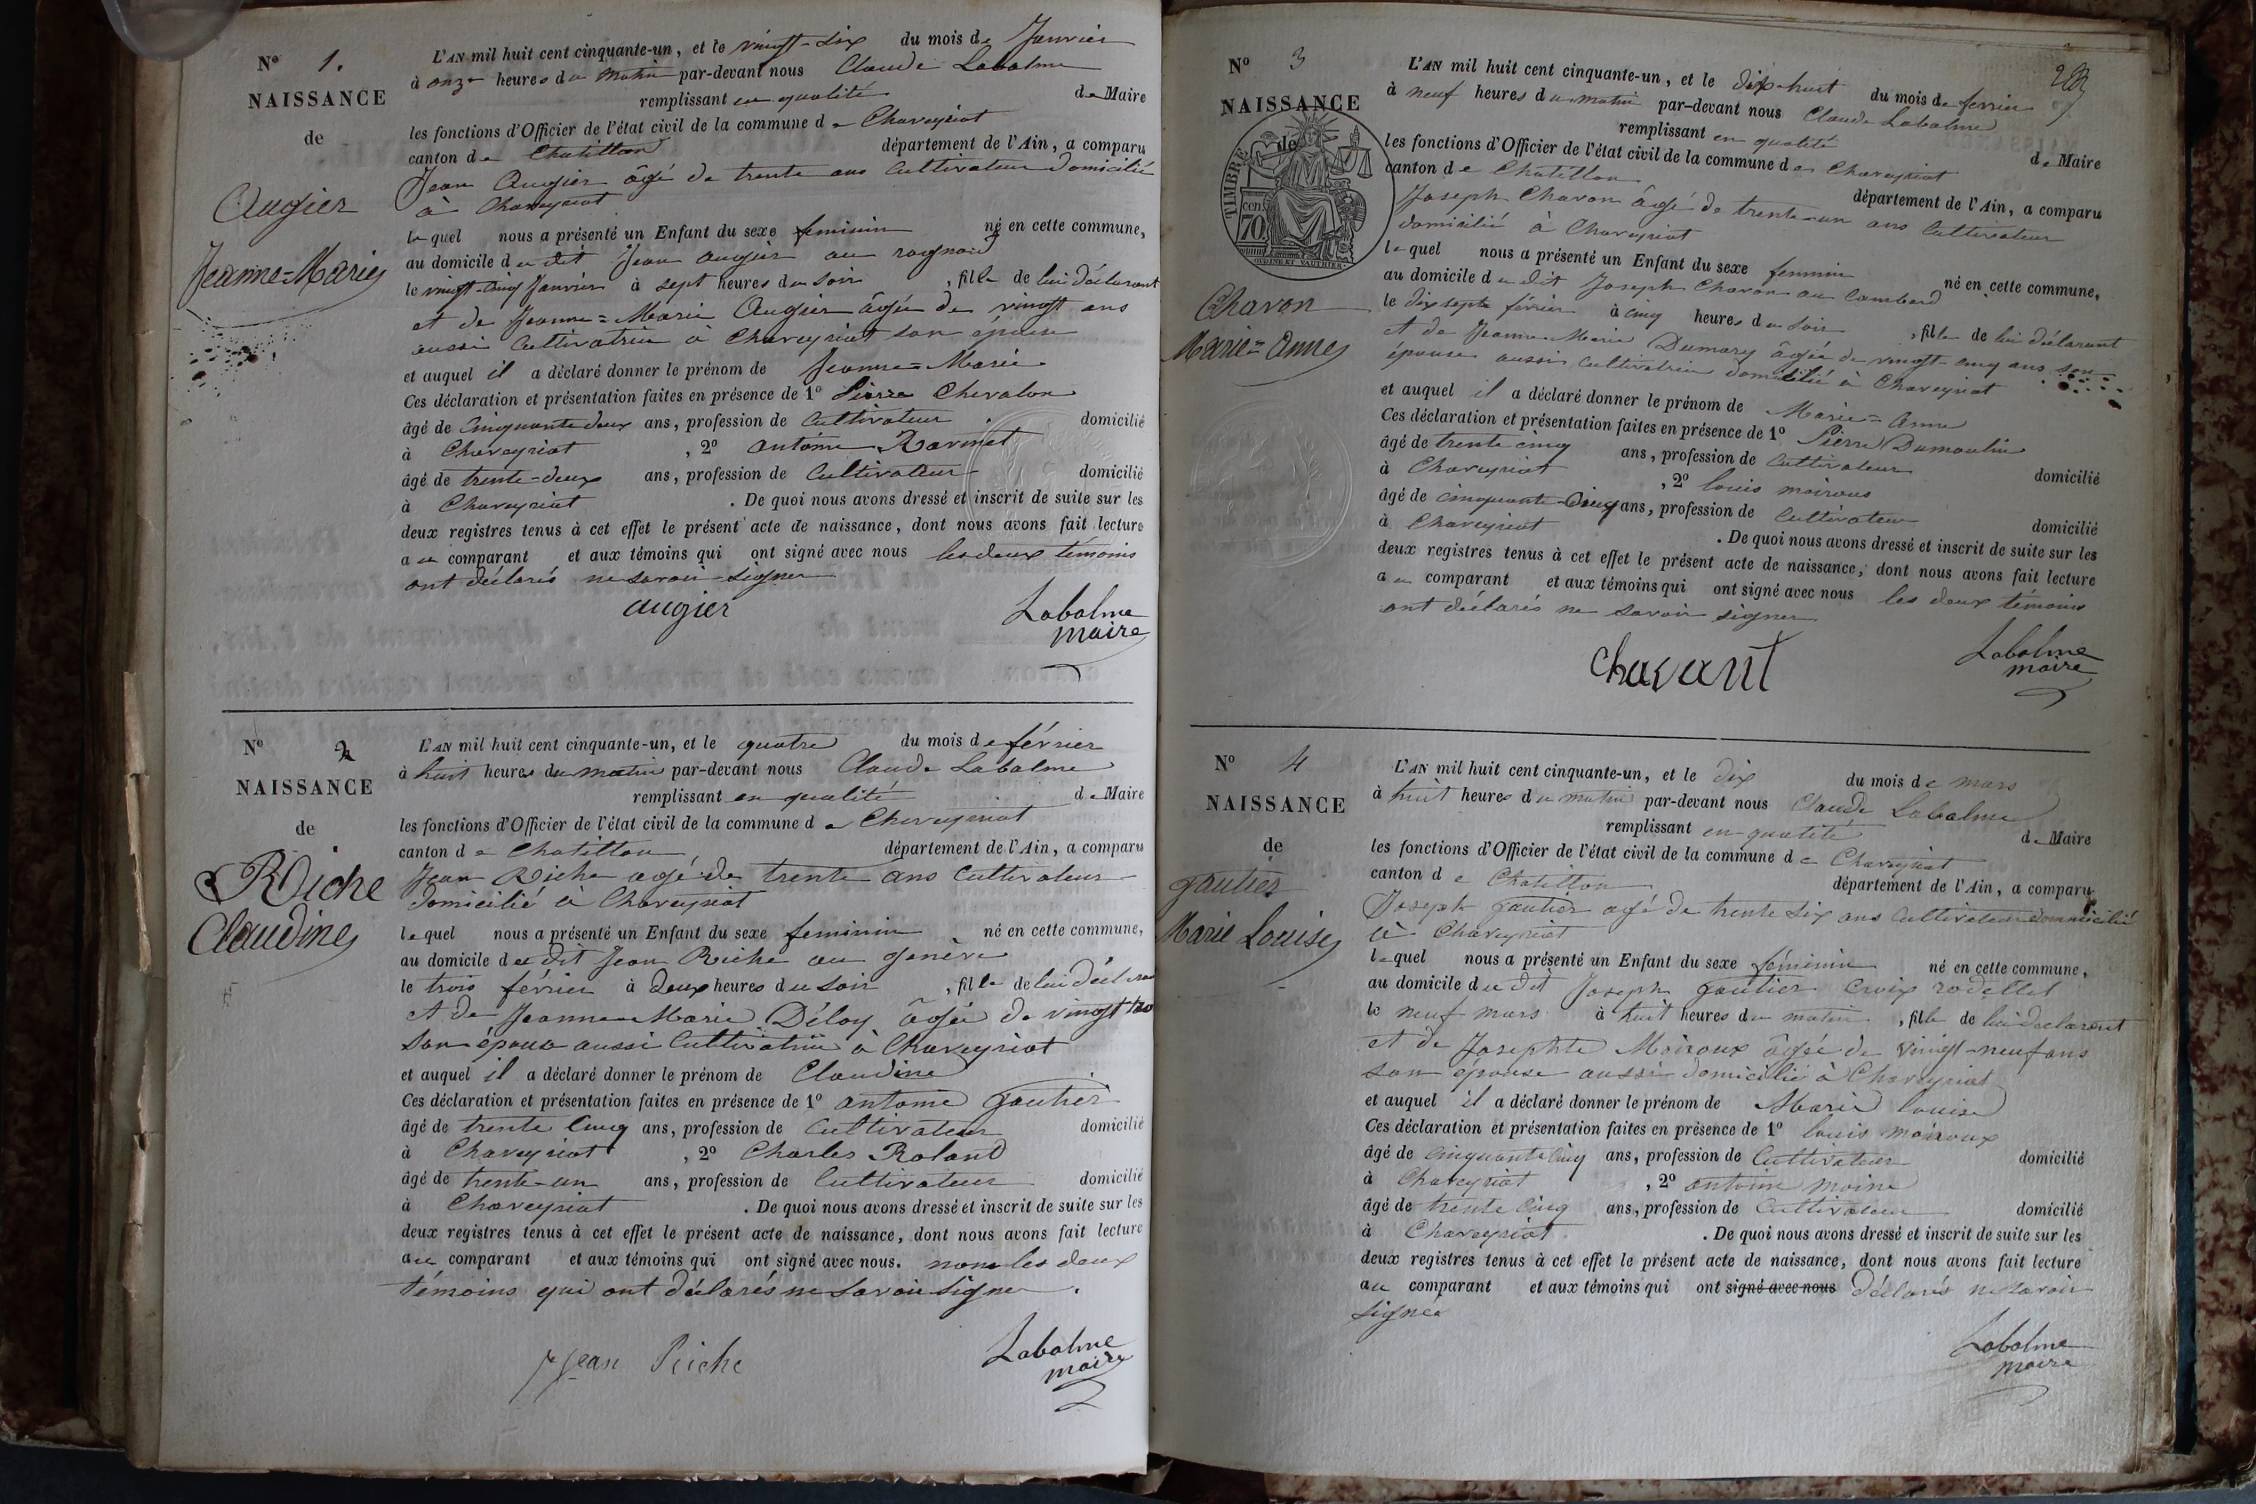 N° 1.
NAISSANCE
de
Augier
Jeanne=Marie
L'AN mil huit cent cinquante-un, et le vingt-six du mois de Janvier
à onze heures du matin par-devant nous Claude Labalme
remplissant en qualité de Maire
les fonctions d'Officier de l'état civil de la commune de Chaveyriat
canton de Chatillon département de l'Ain, a comparu
Jean Augier âgé de trente ans Cultivateur Domicilié
à Chaveyriat
lequel nous a présenté un Enfant du sexe feminin né en cette commune,
au domicile du dit Jean augier au
le vingt-cinq Janvier à sept heures du soir, fille de lui déclarant
et de Jeanne=Marie Augier âgée de vingt ans
aussi Cultivatrice à Chaveyriat son épouse
et auquel il a déclaré donner le prénom de Jeanne=Marie
Ces déclaration et présentation faites en présence de 1° Pierre Chevalon
âgé de Cinquante deux ans, profession de Cultivateur domicilié
à Chaveyriat, 2° antoine Ravinet
âgé de trente-deux ans, profession de Cultivateur domicilié
à Chaveyriat. De quoi nous avons dressé et inscrit de suite sur les
deux registres tenus à cet effet le présent acte de naissance, dont nous avons fait lecture
au comparant et aux témoins qui ont signé avec nous les deux témoins
ont déclarés ne savoir signer
augier
Labalme
maire
N° 2
NAISSANCE
de
Riche
Claudine
L'AN mil huit cent cinquante-un, et le quatre du mois de février
à huit heures du matin par-devant nous Claude Labalme
remplissant en qualité de Maire
les fonctions d'Officier de l'état civil de la commune de Chaveyriat
canton de Chatillon département de l'Ain, a comparu
Jean Riche agé de trente ans Cultivateur
domicilié à Chaveyriat
lequel nous a présenté un Enfant du sexe feminin né en cette commune,
au domicile du dit Jean Riche au genève
le trois février à deux heures du soir, fille de lui déclarant
et de Jeanne Marie Déloy âgée de vingt
son épouse aussi Cultivatrice à Chaveyriat
et auquel il a déclaré donner le prénom de Claudine
Ces déclaration et présentation faites en présence de 1° antoine gautier
âgé de trente Cinq ans, profession de Cultivateur domicilié
à Chaveyriat, 2° Charles Roland
âgé de trente-un ans, profession de Cultivateur domicilié
à Chaveyriat. De quoi nous avons dressé et inscrit de suite sur les
deux registres tenus à cet effet le présent acte de naissance, dont nous avons fait lecture
au comparant et aux témoins qui ont signé avec nous. non les deux
témoins qui ont déclarés ne savoir signer.
Jean Riche
Labalme
maire
N° 3
NAISSANCE
de
TIMBRE
cen
70
OUDINE ET VAUTHIER
Chavon
Marie=Anne
L'AN mil huit cent cinquante-un, et le dix-huit du mois de fevrier
à neuf heures du matin par-devant nous Claude Labalme
remplissant en qualité de Maire
les fonctions d'Officier de l'état civil de la commune de Chaveyriat
canton de Chatillon département de l'Ain, a comparu
Joseph Chavon âgé de trente-un ans Cultivateur
domicilié à Chaveyriat
lequel nous a présenté un Enfant du sexe feminin né en cette commune,
au domicile du dit Joseph Chavon au
le dix sept février à cinq heures du soir, fille de lui déclarant
et de Jeanne Marie Dumary âgée de vingt-cinq ans son
épouse aussi cultivatrice domicilié à Chaveyriat
et auquel il a déclaré donner le prénom de Marie=Anne
Ces déclaration et présentation faites en présence de 1° Pierre Dumoulin
âgé de trente cinq ans, profession de Cultivateur domicilié
à Chaveyriat, 2° louis moiroux
âgé de cinquante-Cinq ans, profession de Cultivateur domicilié
à Chaveyriat. De quoi nous avons dressé et inscrit de suite sur les
deux registres tenus à cet effet le présent acte de naissance, dont nous avons fait lecture
au comparant et aux témoins qui ont signé avec nous les deux témoins
ont déclarés ne savoir signer
chavant
Labalme
maire
N° 4
NAISSANCE
de
gautier
Marie Louise
L'AN mil huit cent cinquante-un, et le dix du mois de mars
à huit heures du matin par-devant nous Claude Labalme
remplissant en qualité de Maire
les fonctions d'Officier de l'état civil de la commune de Chaveyriat
canton de Chatillon département de l'Ain, a comparu
Joseph gautier agé de trente six ans Cultivateur domicilié
à Chaveyriat
lequel nous a présenté un Enfant du sexe féminin né en cette commune,
au domicile du dit Joseph gautier Croix
le neuf mars à huit heures du matin, fille de lui declarent
et de Josephte Moiroux âgée de vingt-neuf ans
son épouse aussi domicilié à Chaveyriat
et auquel il a déclaré donner le prénom de Marie louise
Ces déclaration et présentation faites en présence de 1° louis moiroux
âgé de cinquante Cinq ans, profession de Cultivateur domicilié
à Chaveyriat, 2° antoine moine
âgé de trente Cinq ans, profession de Cultivateur domicilié
à Chaveyriat. De quoi nous avons dressé et inscrit de suite sur les
deux registres tenus à cet effet le présent acte de naissance, dont nous avons fait lecture
au comparant et aux témoins qui ont signé avec nous déclarés ne savoir
signer
Labalme
maire